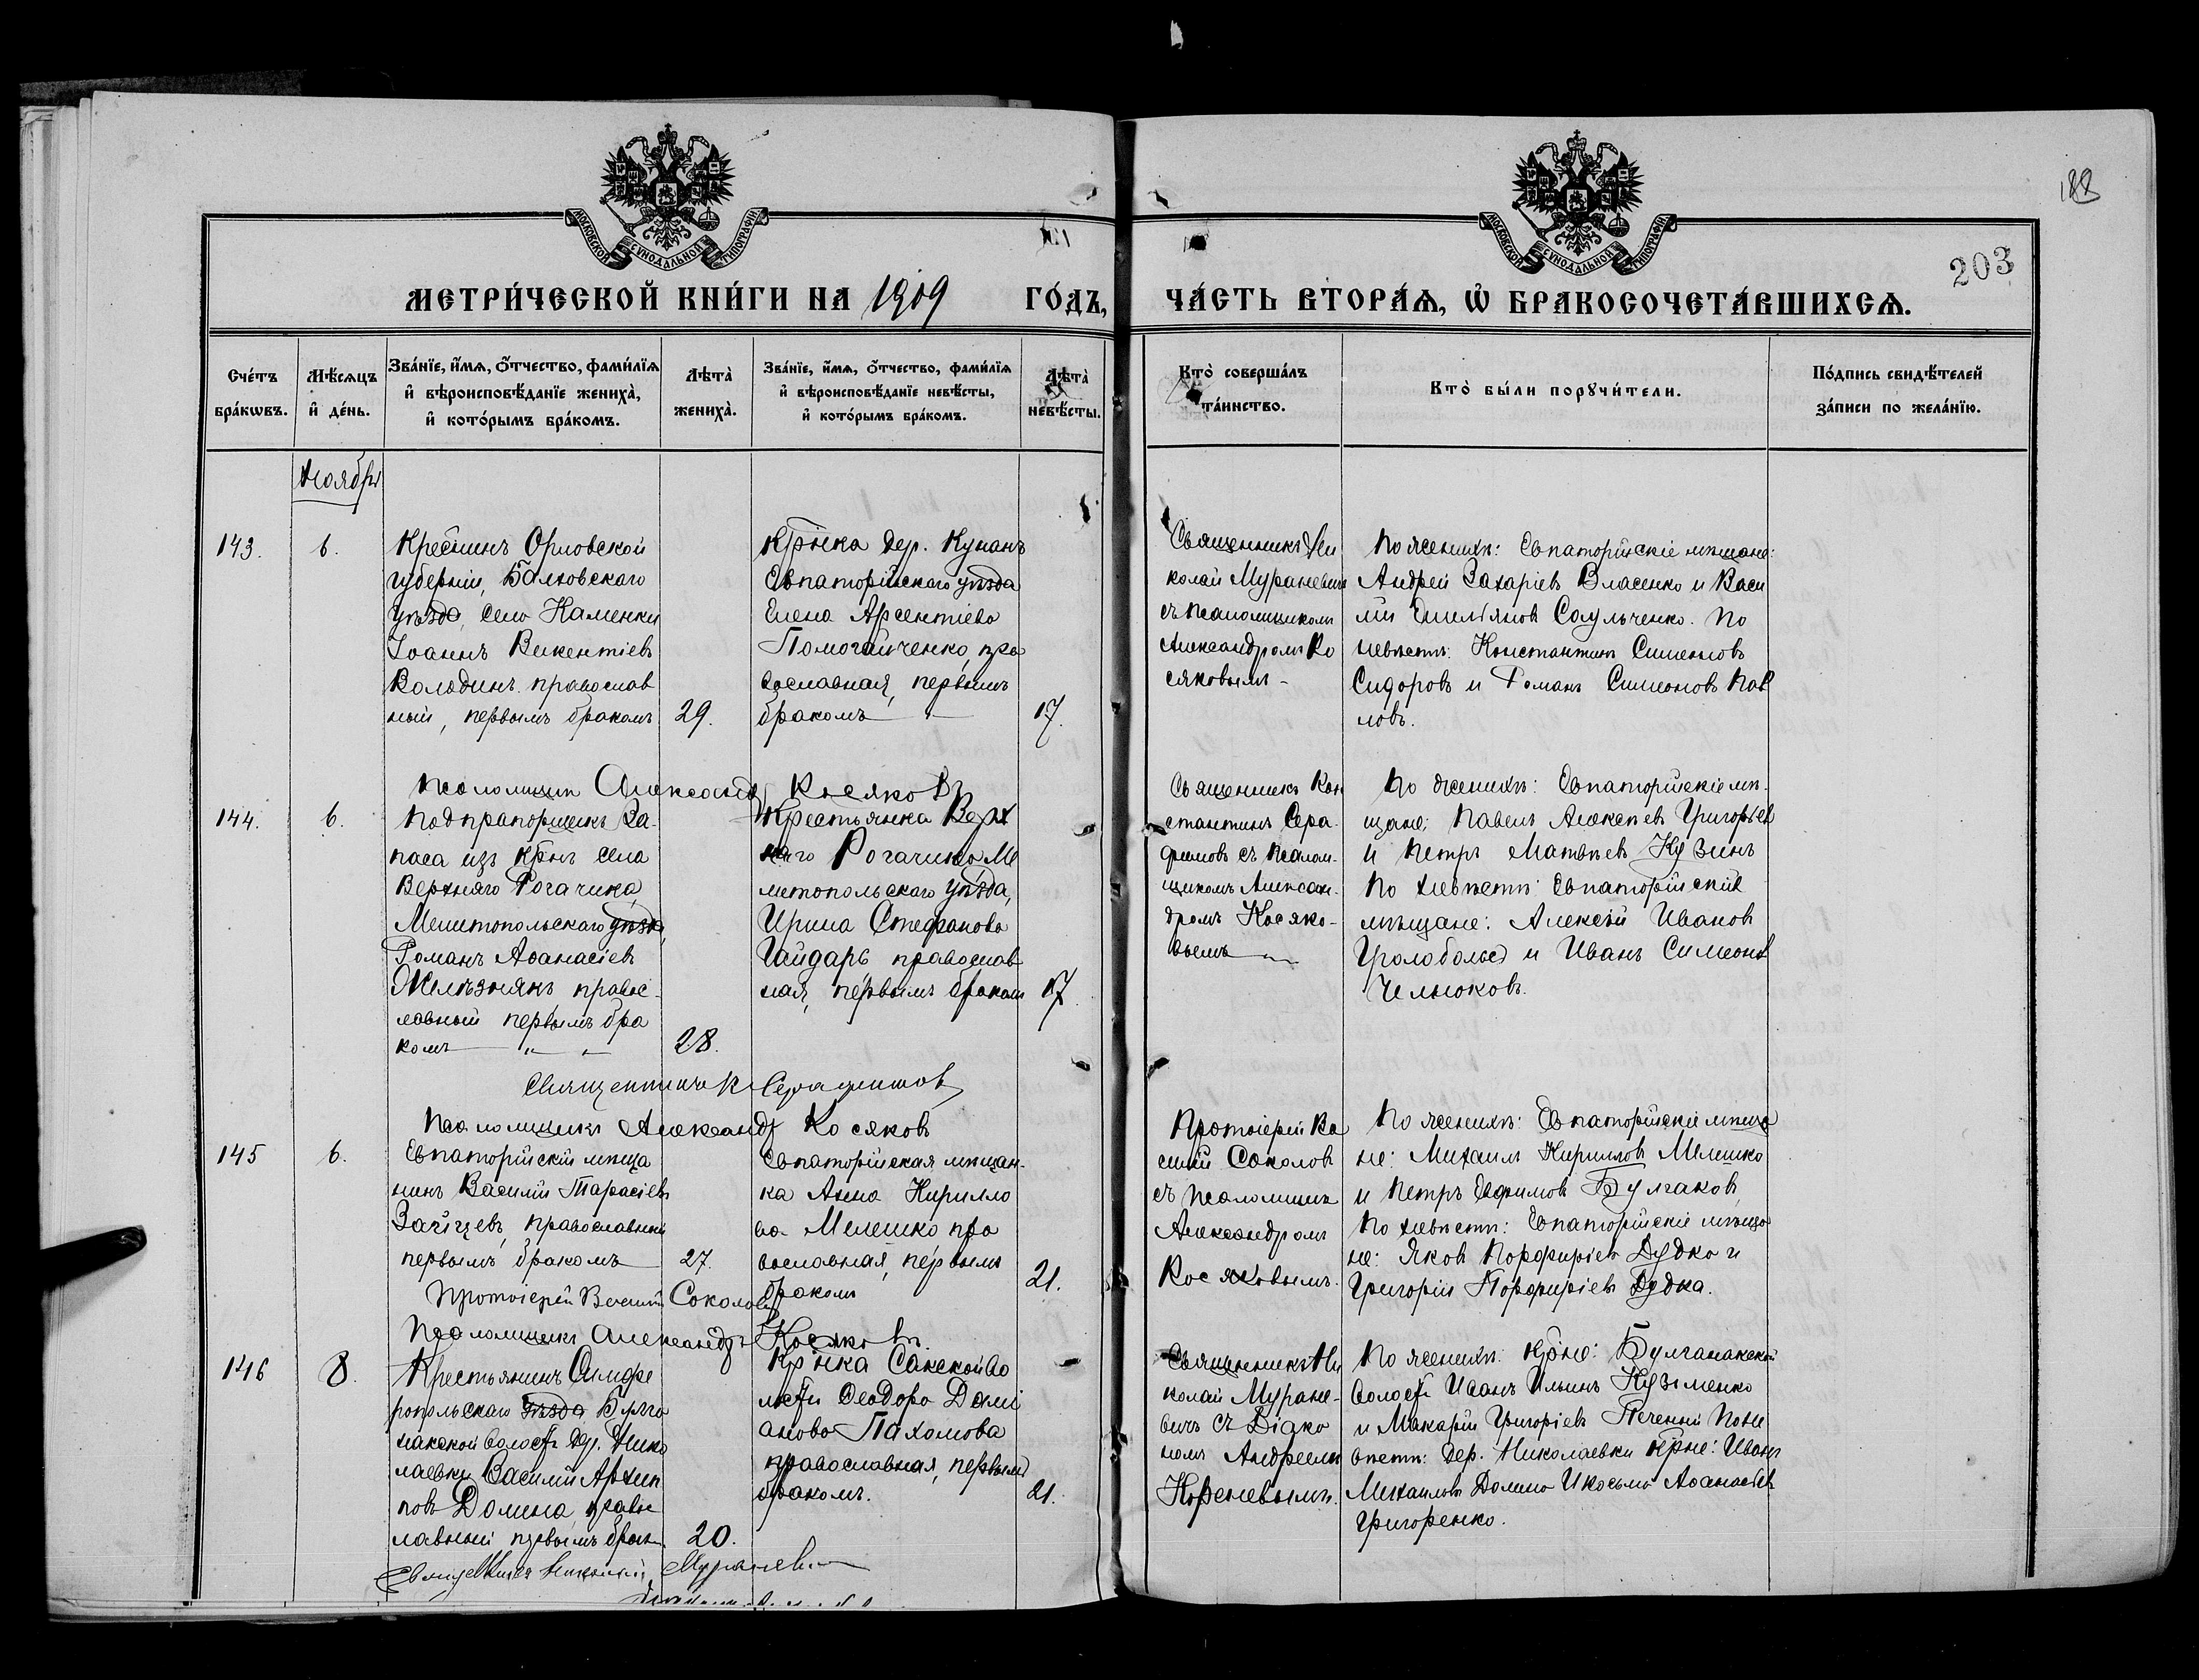 188
203
МОСКОВСКОЙ СѴНОДАЛЬНОЙ ТИПОГРАФІИ
МОСКОВСКОЙ СѴНОДАЛЬНОЙ ТИПОГРАФІИ
МЕТРИ́ЧЕСКОЙ КНИ́ГИ НА 1909 ГО́ДЪ, ЧА́СТЬ ВТОРА́Ѧ, Ѡ҆ БРАКОСОЧЕТА́ВШИХСѦ.
Сче́тъ
бра́кѡвъ.
Мѣ́сѧцъ
и҆ де́нь.
Зва́нїе, и҆́мѧ, ѻ҆́тчество, фами́лїѧ
и҆ вѣроисповѣ́данїе жениха̀,
и҆ кото́рымъ бра́комъ.
Лѣта̀
жениха̀.
Зва́нїе, и҆́мѧ, ѻ҆́тчество, фами́лїѧ
и҆ вѣроисповѣ́данїе невѣ́сты,
и҆ кото́рымъ бра́комъ.
Лѣта̀
невѣ́сты.
Кто̀ соверша́лъ
та́инство.
Кто̀ бы́ли порꙋчи́тели.
По́дпись свидѣ́телей
за́писи по жела́нїю.
Ноябрь
143.
6.
Крестьнинъ Орловской
губерніи, Балховскаго
уѣзда, село Каменки
Іоаннъ Викентіевъ
Володинъ православ
ный, первымъ бракомъ
29.
Кр҃нка дер. Кунанъ
Евпаторійскаго уѣзда
Елена Арсентіева
Помогайченко, пра
вославная, первымъ
бракомъ —
17.
Священникъ Ни
колай Мураневичъ
съ псаломщикомъ
Александромъ Ко
сяковымъ –
По женихѣ: Евпаторійскіе мѣщане:
Андрей Захаріевъ Власенко и Васи
лій Емельяновъ Саульченко. По
невѣстѣ: Константинъ Симеоновъ
Сидоровъ и Романъ Симеоновъ Пав
ловъ.
Псаломщикъ Александръ Косяковъ
144.
6.
Подпрапорщикъ За-
паса изъ кр҃нъ села
Верхняго Рогачика,
Мелитопольскаго уѣзда,
Романъ Аѳанасіевъ
Желѣзнякъ правос-
лавный первымъ бра
комъ — " —
28.
Крестьянка Верх
няго Рогачика Ме
литопольскаго уѣзда,
Ирина Стефанова
Гайдарь православ
ная, первымъ бракомъ
17.
Священникъ Кон
стантинъ Сера-
фимовъ съ псалом-
щикомъ Алексан-
дромъ Косяко-
вымъ —
По женихѣ: Евпаторійскіе мѣ-
щане: Павелъ Алексѣевъ Григорьевъ
и Петръ Матвѣевъ Кузинъ
По невѣстѣ: Евпаторійскіе
мѣщане: Алексѣй Ивановъ
и Иванъ Симеоновъ
Чельюковъ.
Священникъ К. Серафимовъ
Псаломщикъ Александръ Косяковъ
145
6.
Евпаторійскій мѣща
нинъ Василій Тарасіевъ
Зайцевъ, православный
первымъ бракомъ
27.
Евпаторійская мѣщан-
ка Анна Кирилло
ва Мелешко пра
вославная, первымъ
бракомъ
21.
Протоіерей Ва
силій Соколовъ
съ псаломщик
Александромъ
Косяковымъ.
По женихѣ: Евпаторійскіе мѣща
не: Михаилъ Кирилловъ Мелешко
и Петръ Ефимовъ Булгаковъ,
По невѣстѣ: Евпаторійскіе мѣща
не: Яковъ Порфиріевъ Дудка и
Григорій Порфиріевъ Дудка.
Протоіерей Василій Соколовъ
Псаломщикъ Александръ Косяковъ.
146
8.
Крестьянинъ Симфе
ропольскаго уѣзда Булга
накской волости дер. Нико
лаевки Василій Архип
повъ Долина, правос
лавный первымъ брак
20.
Кр҃нка Сакской во
лости Ѳеодора Домі
анова Пахомова
православная, первымъ
бракомъ.
21.
Священникъ Ни
колай Муране-
вичъ съ Діако
номъ Андреемъ
Кореневымъ.
По женихѣ: кр҃не: Булганакской
волости Иванъ Ильинъ Кузьменко
и Макарій Григоріевъ Печеный По не
вѣстѣ: дер. Николаевки кр҃не: Иванъ
Михаиловъ Долина и Косьма Аѳанасіевъ
Григоренко.
Священникъ Николай Мураневичъ